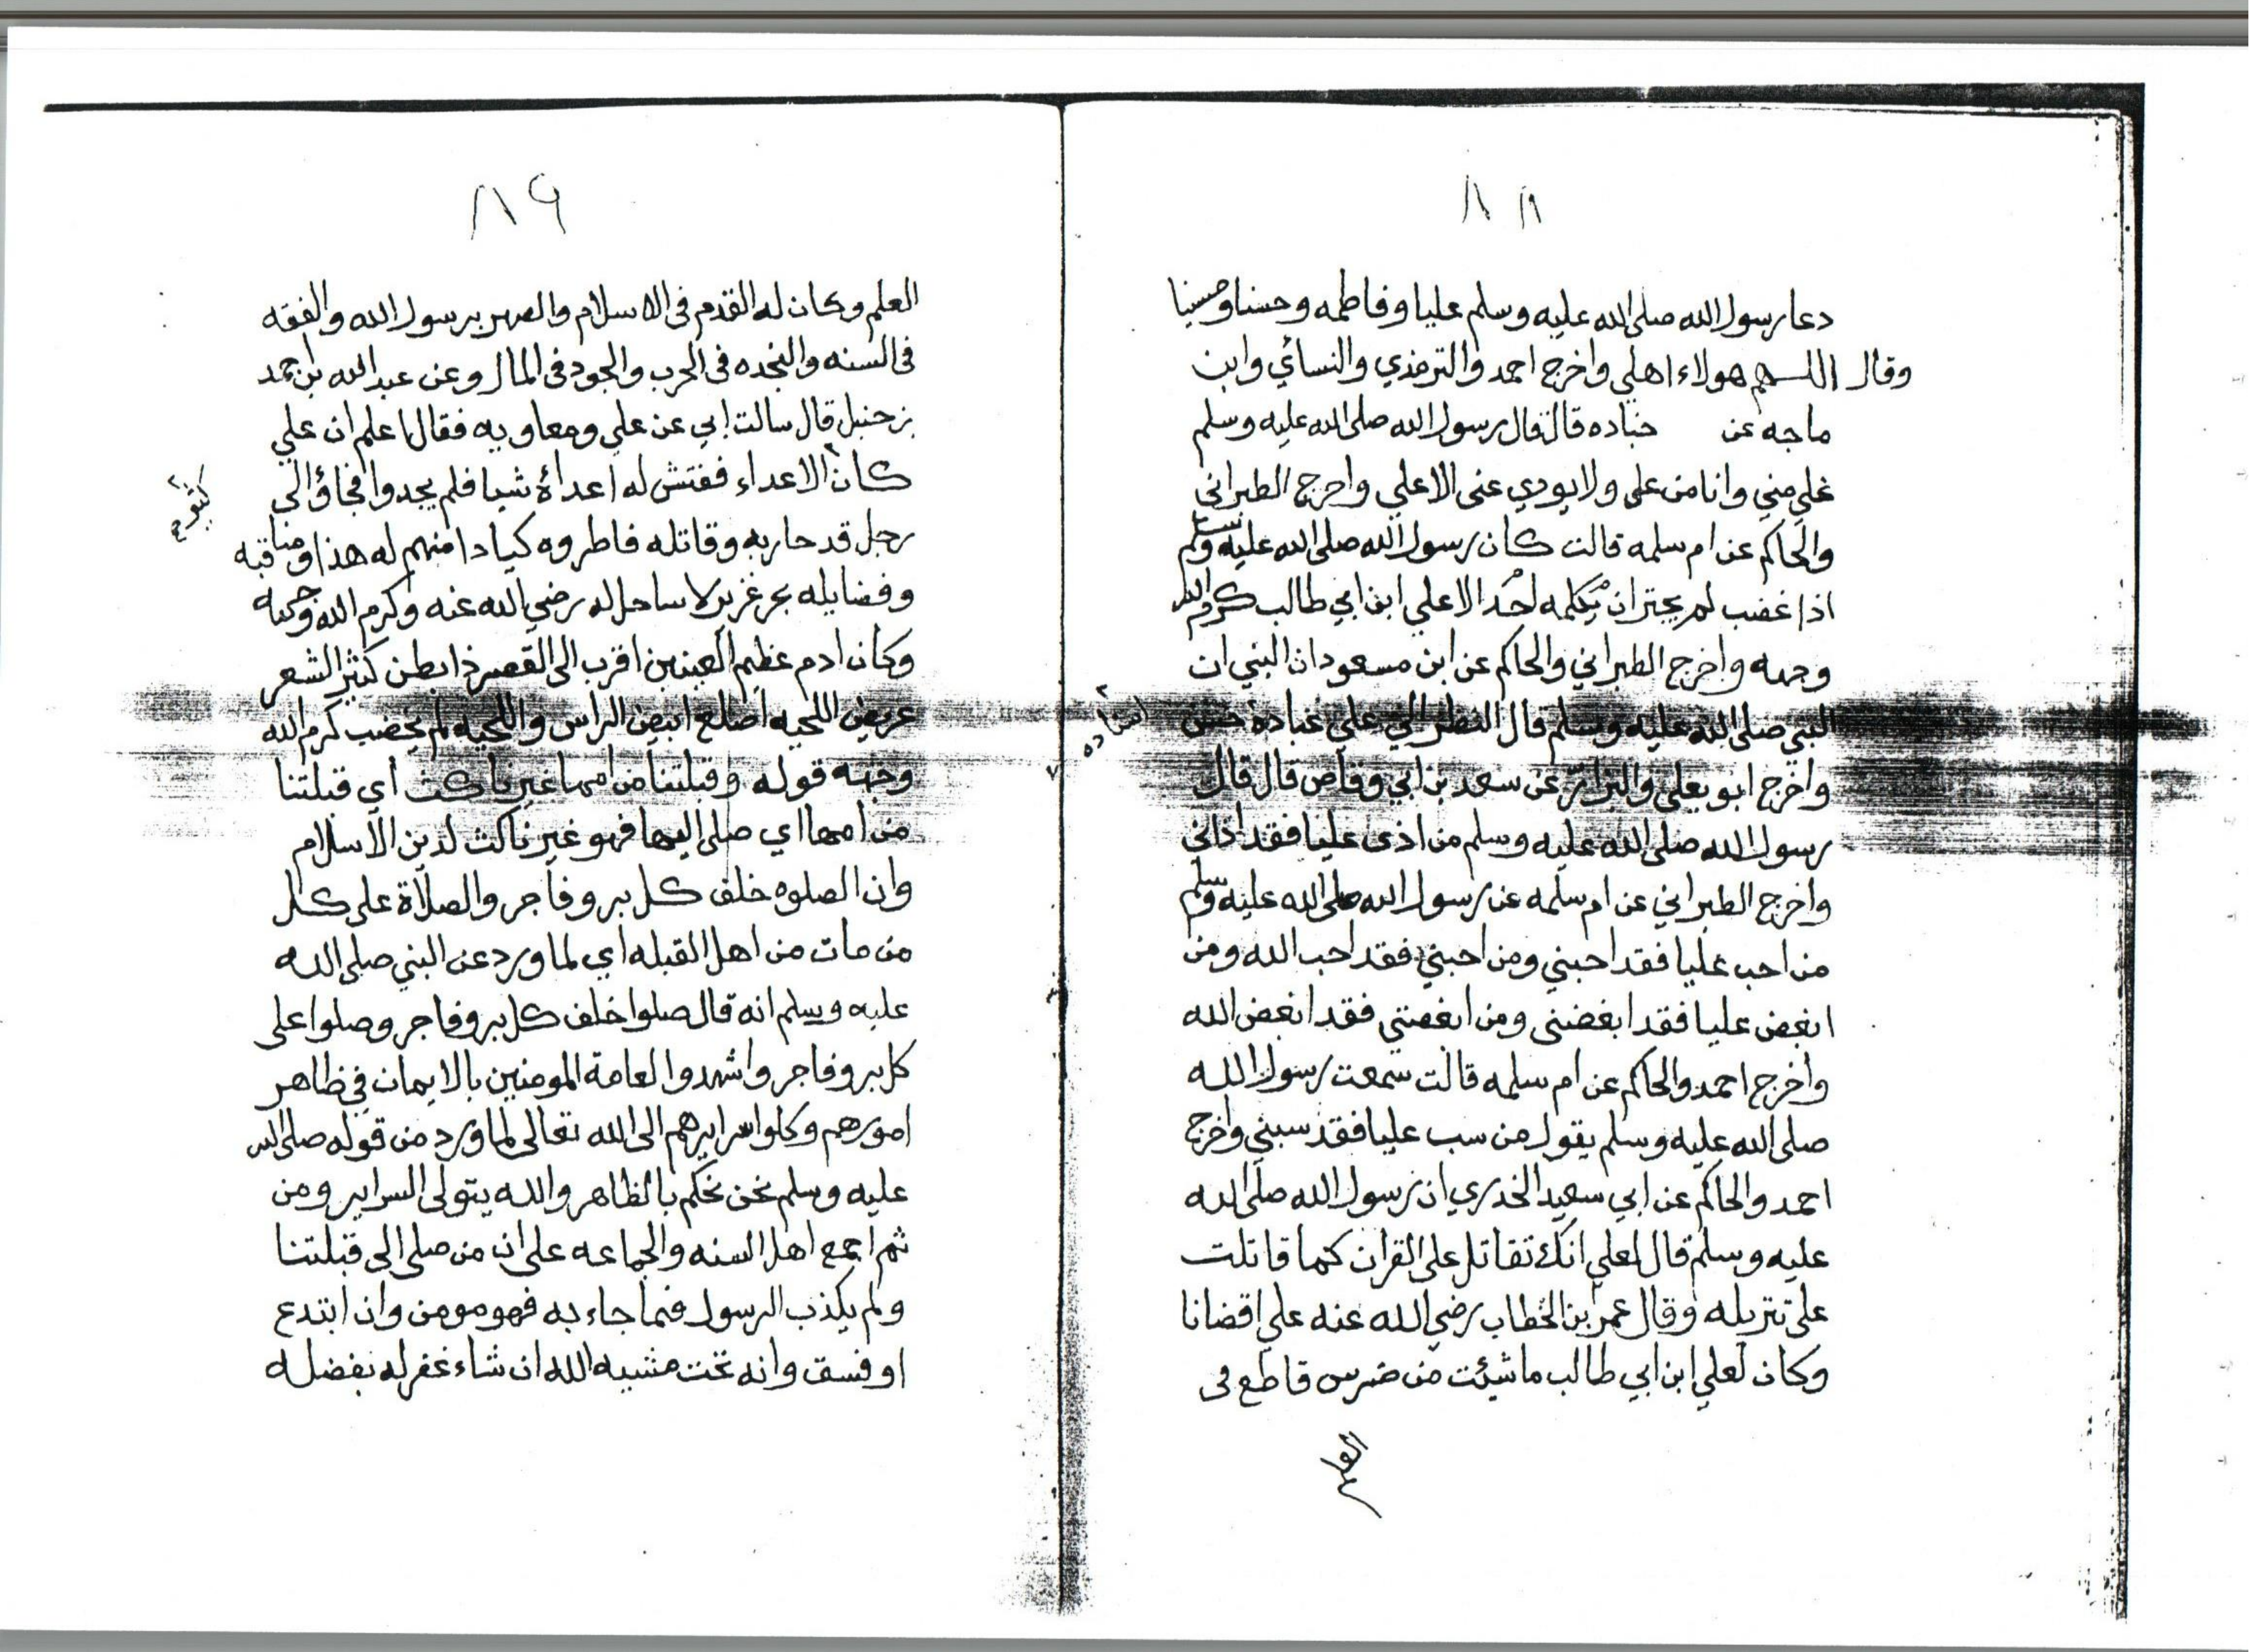 ٨٨
دعا رسول الله صلى الله عليه وسلم عليا وفاطمه وحسنا وحسينا
وقال اللهم هولاء اهلي واخرج احمد والترمذي والنسائي وابن
ماجه عن حباده قال قال رسول الله صلى الله عليه وسلم
علي مني وانا من على ولا يودي عنى الا علي واخرج الطبراني
والحاكم عن ام سلمه قالت كان رسول الله صلى الله عليه وسلم
اذا غضب لم يجتر ان يكلمه احد الا علي ابن ابي طالب كرم الله
وجهه واخرج الطبراني والحاكم عن ابن مسعود ان النبي ان
النبي صلى الله عليه وسلم قال النظر الي علي عبادة حسن
اسناده
واخرج ابو يعلى والبزار عن سعد بن ابي وقاص قال قال
رسول الله صلى الله عليه وسلم من اذى عليا فقد اذاني
واخرج الطبراني عن ام سلمه عن رسول الله صلى الله عليه وسلم
من احب عليا فقد احبني ومن احبني فقد احب الله ومن
ابغض عليا فقد ابغضني ومن ابغضني فقد ابغض الله
واخرج احمد والحاكم عن ام سلمه قالت سمعت رسول الله
صلى الله عليه وسلم يقول من سب عليا فقد سبني واخرج
احمد والحاكم عن ابي سعيد الخدري ان رسول الله صلى الله
عليه وسلم قال لعلي انك تقاتل على القران كما قاتلت
على تنزيله وقال عمر ابن الخطاب رضي الله عنه علي اقضانا
وكان لعلي ابن ابي طالب ما شيئت من ضرس قاطع في
العلم
٨٩
العلم وكان له القدم في الاسلام والصهر برسول الله والفقه
في السنه والنجده في الحرب والجود في المال وعن عبد الله بن احمد
بن حنبل قال سالت ابي عن علي ومعاويه فقال اعلم ان علي
كان الاعداء ففتش له اعداؤه شيا فلم يجدوا فجاؤ الى
كثير
رجل قد حاربه وقاتله فاطروه كيادا منهم له هذا ومناقبه
وفضايله بحر غزير لا ساحل له رضي الله عنه وكرم الله وجهه
وكان ادم عظيم العينين اقرب الى القصر ذا بطن كثير الشعر
عريض اللحيه اصلع ابيض الراس واللحيه لم يخضب كرم الله
وجهه قوله وقبلتنا من امها غير ناكث اي قبلتنا
من امها اي صلى اليها فهو غير ناكث لدين الاسلام
وان الصلوه خلف كل بر وفاجر والصلاة على كل
من مات من اهل القبله اي لما ورد عن النبي صلى الله
عليه وسلم انه قال صلوا خلف كل بر وفاجر وصلوا على
كل بر وفاجر واشهدوا لعامة المومنين بالايمان في ظاهر
امورهم وكلوا سرايرهم الى الله تعالى لما ورد من قوله صلى الله
عليه وسلم نحن نحكم بالظاهر والله يتولى السراير ومن
ثم اجمع اهل السنه والجماعه على ان من صلى الى قبلتنا
ولم يكذب الرسول فيما جاء به فهو مومن وان ابتدع
او فسق وانه تحت مشيه الله ان شاء غفر له بفضله